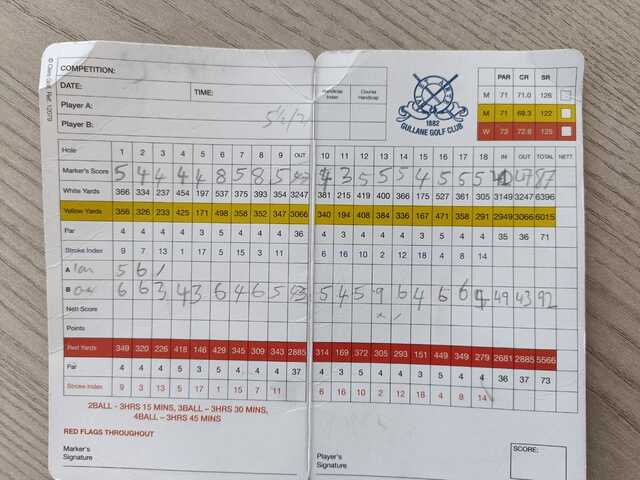 © Caro Golf
COMPETITION:
DATE: TIME:
Player A: Handicap Index Course Handicap
Player B:
PAR CR SR
M 71 71.0 126
M 71 69.3 122
W 73 72.8 125
1882
GULLANE GOLF CLUB
Hole 1 2 3 4 5 6 7 8 9 OUT 10 11 12 13 14 15 16 17 18 IN OUT TOTAL NETT
Marker's Score 5 4 4 4 4 8 5 8 5 4 3 5 5 5 4 5 5 5 87
White Yards 366 334 237 454 197 537 375 394 353 3247 381 215 419 400 366 175 527 361 305 3149 3247 6396
Yellow Yards 356 326 233 425 171 498 358 352 347 3066 340 194 408 384 336 167 471 358 291 2949 3066 6015
Par 4 4 3 4 3 5 4 4 4 36 4 3 4 4 4 3 5 4 4 35 36 71
Stroke Index 9 7 13 1 17 5 15 3 11 6 16 10 2 12 18 4 8 14
A Ian 5 6 /
B 6 6 3 4 3 6 4 6 5 43 5 4 5 9 6 4 6 6 4 49 43 92
Nett Score
Points
Red Yards 349 320 226 418 146 429 345 309 343 2885 314 169 372 305 293 151 449 349 279 2681 2885 5566
Par 4 4 4 5 3 5 4 4 4 37 4 3 4 4 4 3 5 4 4 36 37 73
Stroke Index 9 3 13 5 17 1 15 7 11 6 16 10 2 12 18 4 8 14
2BALL - 3HRS 15 MINS, 3BALL – 3HRS 30 MINS,
4BALL – 3HRS 45 MINS
RED FLAGS THROUGHOUT
Marker's Signature
Player's Signature
SCORE: